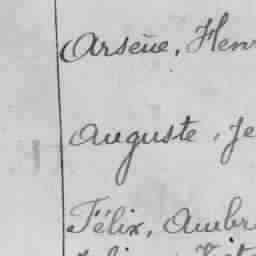 Arsène, Henr
Auguste, Je
Félix, Ambr